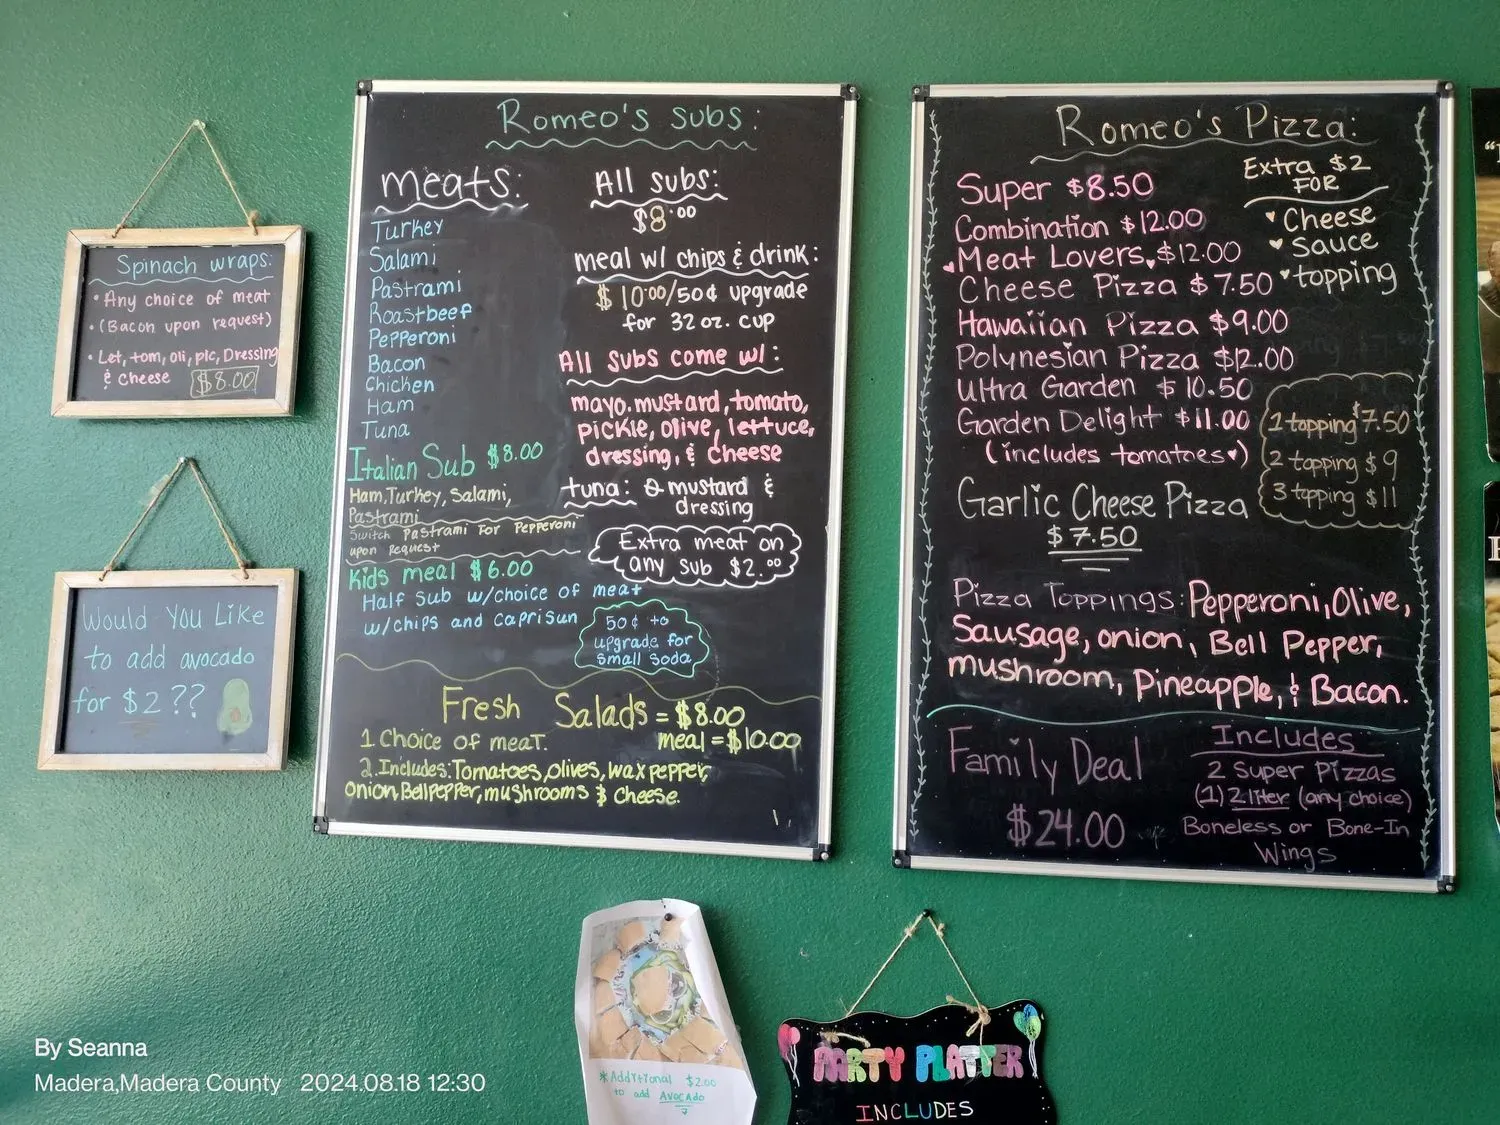 Spinach wraps:
• Any choice of meat
• (Bacon upon request)
• Let, tom, oli, pic, Dressing
& cheese $8.00
Would You Like
to add avocado
for $2 ??
Romeo's subs:
meats:
Turkey
Salami
Pastrami
Roastbeef
Pepperoni
Bacon
Chicken
Ham
Tuna
Italian Sub $8.00
Ham, Turkey, Salami,
Pastrami
Switch Pastrami For Pepperoni
upon Request
Kids meal $6.00
Half sub w/choice of meat
w/chips and caprisun
50¢ to
upgrade for
small soda
All subs:
$8.00
meal w/ chips & drink:
$10.00/50¢ upgrade
for 32 oz. cup
All subs come w/:
mayo. mustard, tomato,
pickle, olive, lettuce,
dressing, & cheese
tuna: Ø mustard &
dressing
Extra meat on
any sub $2.00
Fresh Salads = $8.00
1 Choice of meat. meal = $10.00
2. Includes: Tomatoes, olives, wax pepper,
onion, Bell pepper, mushrooms & cheese.
Romeo's Pizza:
Super $8.50
Combination $12.00
Meat Lovers $12.00
Cheese Pizza $7.50
Hawaiian Pizza $9.00
Polynesian Pizza $12.00
Ultra Garden $10.50
Garden Delight $11.00
(includes tomatoes♥)
Garlic Cheese Pizza
$7.50
Extra $2
FOR
♥ Cheese
♥ Sauce
♥ topping
1 topping $7.50
2 topping $9
3 topping $11
Pizza Toppings: Pepperoni, Olive,
Sausage, onion, Bell Pepper,
mushroom, Pineapple, & Bacon.
Family Deal
$24.00
Includes
2 Super Pizzas
(1) 2 liter (any choice)
Boneless or Bone-In
Wings
*Additional $2.00
to add Avocado
PARTY PLATTER
INCLUDES
By Seanna
Madera,Madera County 2024.08.18 12:30